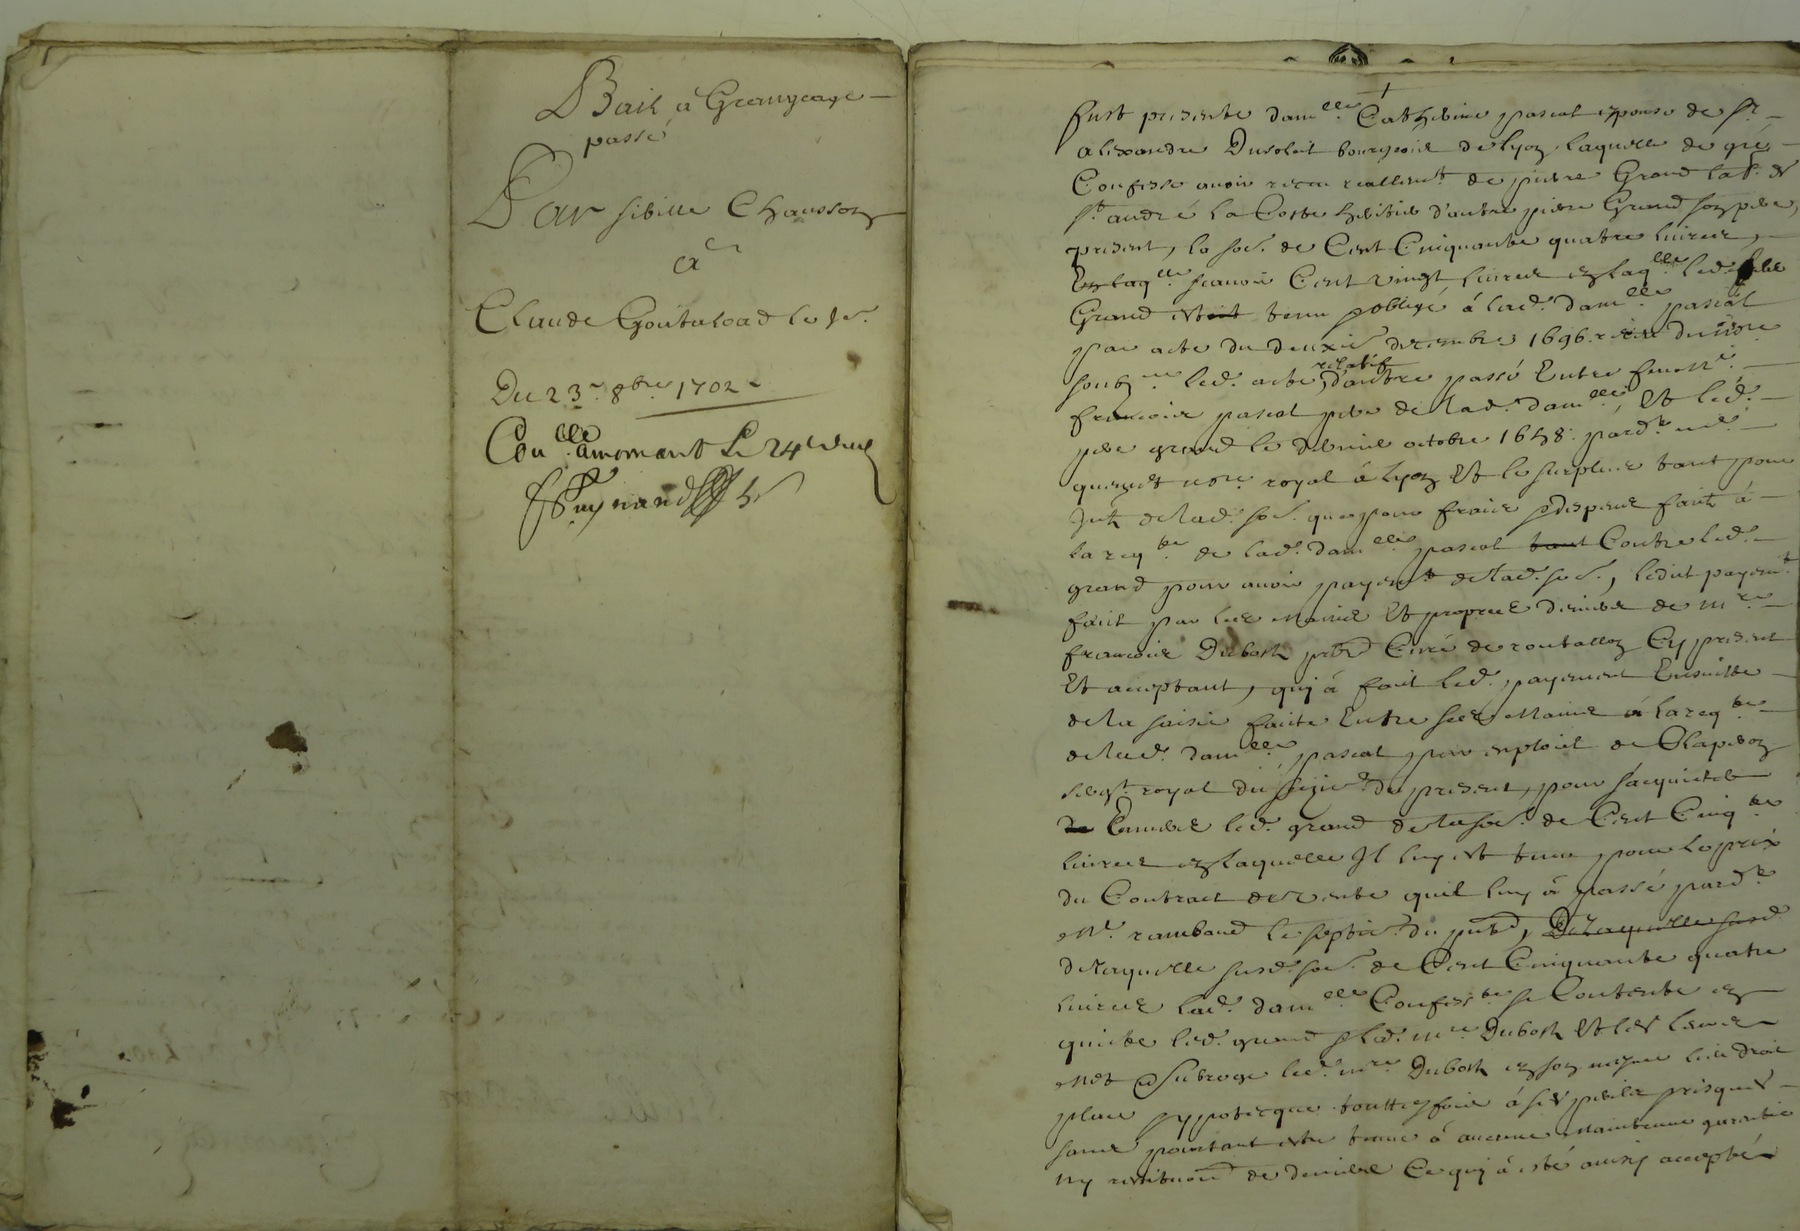 Bail à Grangeage
passé
Par sibille Chausson
à
Claude Goutaload le Je.
Du 23e 8bre 1702
Conlle amornant Le 24 desd
fust presente damelle Catherine pascal espouse de Sr
alexandre Dusoleil bourgeois de lyon laquelle de gré
Confesse avoir receu reallemt de pierre Grand labr de
st andré la Coste heritier d'autre pierre Grand son pere,
present, la soe. de Cent Cinquante quatre livres,
scavoir Cent vingt livres en laqlle led.
Grand estoit tenu & obligé à lad. damelle pascal
par acte du deuxie decembre 1696. receu du nore
soubne led. acte relatif d'autre passé Entre feu mre
francois pascal pere de lad. damelle, Et led.
pere grand le dernier octobre 1658. pardt me
nore royal à lyon Et le surplus tant pour
Intt de lad. soe. que pour frais & despens faits à
la reqte de lad. damelle pascal tant Contre led.
grand pour avoir payemt de lad. soe., ledit payemt
fait par les mains Et propres deniers de mre
francois Dubost pbre Curé de rontallon Cy present
Et acceptant, qui à fait led. payement Ensuitte
de la saisie faite Entre ses mains à la reqte
de lad. damelle pascal par exploit de Claperon
sergt royal du du present, pour s'acquicter
de Envers led. grand de la soe. de Cent Cinqte
livres en laquelle Il luy est tenu pour le prix
du Contract de vente quil luy à passé pardt
Me rambaud le septie. du pnt, De laquelle susd
de laquelle susd. soe. de Cent Cinquante quatre
livres lad. damelle Confeste se Contente en
quitte led. grand & led. mre Dubost Et les
met & subroge led. mre Dubost en son mesme lieu droit
place & ypotecque touttesfois à ses perils & risques
sans pourtant estre tenue à aucune maintenue garantie
ny restituon de deniers Ce qui à esté ainsy accepté